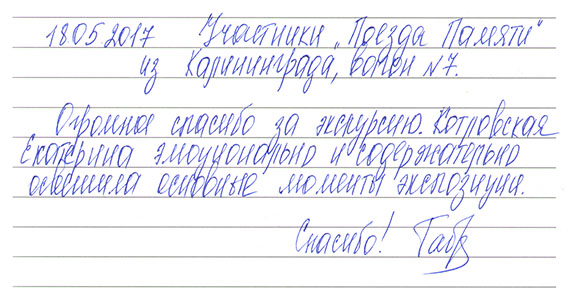 18052017 Участники „Поезда Памяти"
из Калининграда, вагон №7.
Огромное спасибо за экскурсию. Котловская
Екатерина эмоционально и содержательно
осветила основные моменты экспозиции.
Спасибо!